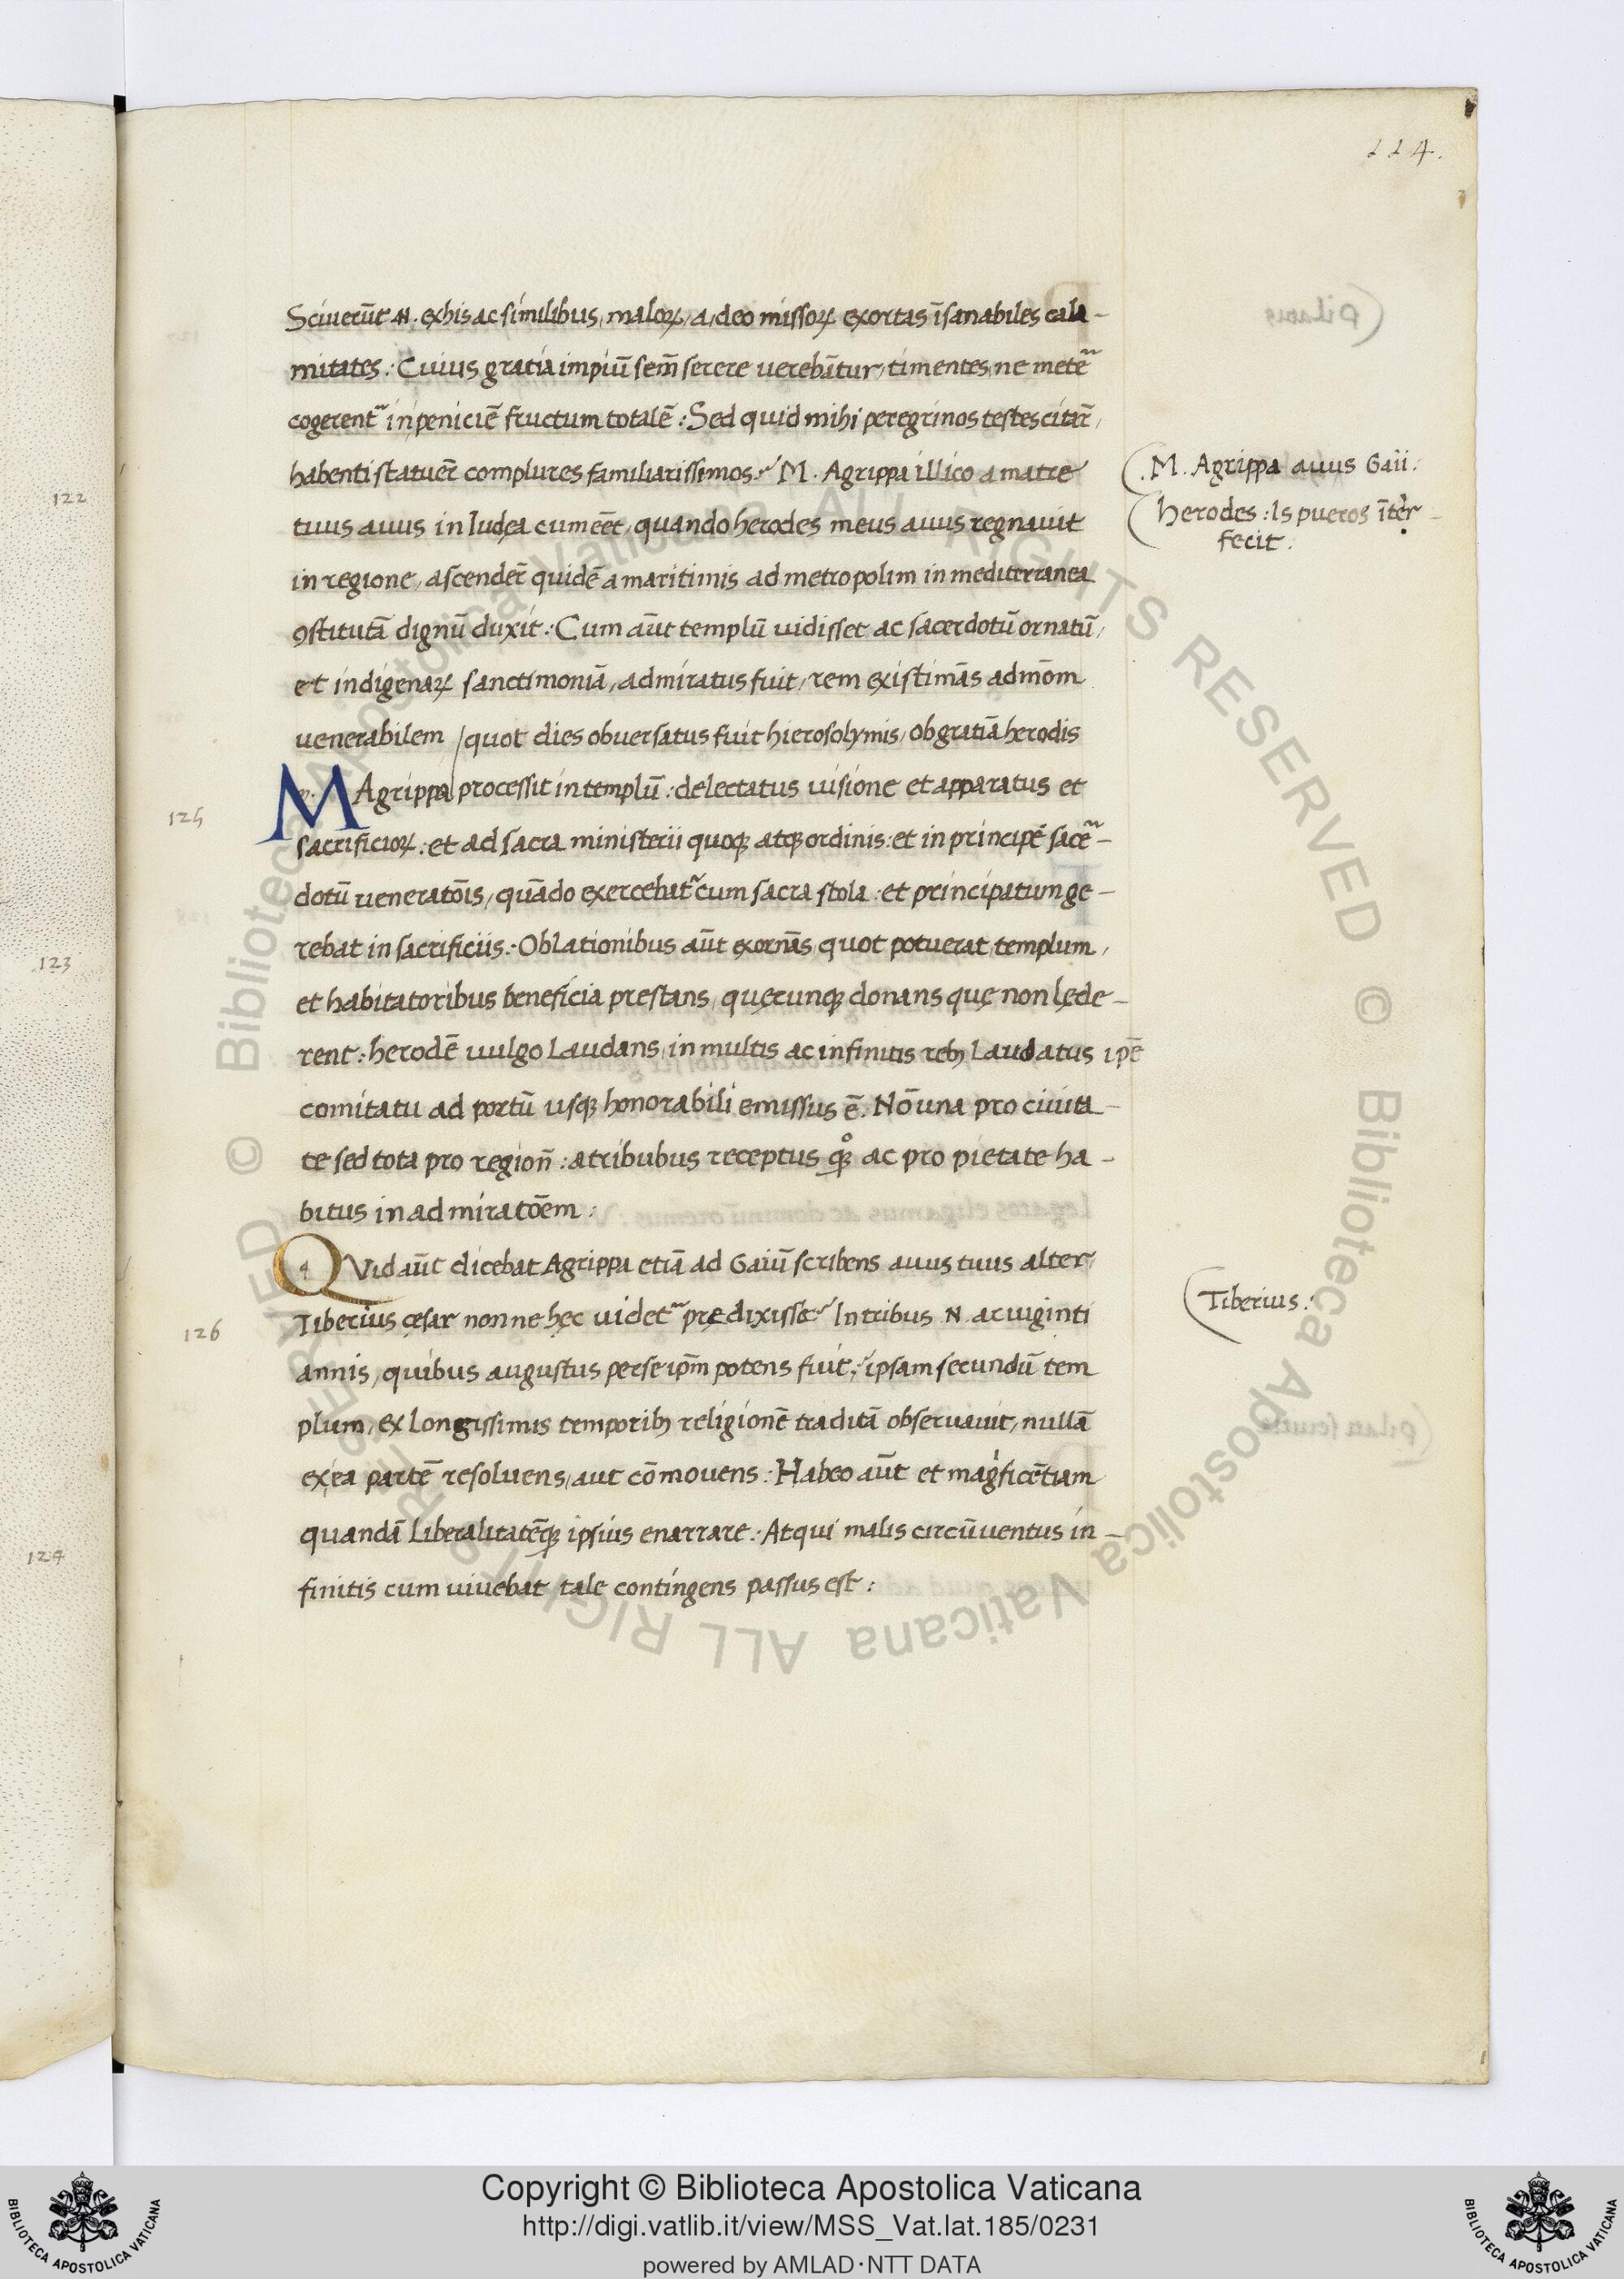 224.
Sciuerūt .N. ex his ac similibus, maloꝝ, a, deo missoꝝ exortas īsanabiles cala-
mitates: Cuius gratia impiū sem̄ serere uerebātur, timentes, ne metēr
cogerentr in peniciē fructum totalē: Sed quid mihi peregrinos testes citar̄,
habenti statuer̄ complures familiarissimos? M. Agrippa illico a matre
tuus auus in Iudęa cum eēt, quando herodes meus auus regnauit
in regione, ascender̄ quidē a maritimis ad metropolim in mediterranea
ꝯstitutā dignū duxit: Cum aūt templū uidisset ac sacerdotū ornatū,
et indigenaꝝ sanctimoniā, admiratus fuit, rem existimās admōm
uenerabilem / quot dies obuersatus fuit hierosolymis, ob gratiā herodis
M. Agrippa processit in templū: delectatus uisione et apparatus et
sacrificioꝝ: et ad sacra ministerii quoqꝫ atqꝫ ordinis: et in principē sacēr-
dotū ueneratōis, quādo exercebatr cum sacra stola: et principatum ge-
rebat in sacrificiis: Oblationibus aūt exornās, quot potuerat templum,
et habitatoribus beneficia prestans, quęcunqꝫ donans quę non lęde-
rent: herodē uulgo laudans, in multis ac infinitis rebꝫ laudatus ipē
comitatu ad portū usqꝫ honorabili emissus ē. Nō una pro ciuita-
te sed tota pro region̄: a tribubus receptus qꝫ ac pro pietate ha-
bitus in admiratōem:
QVid aūt dicebat Agrippa etiā ad Gaiū scribens auus tuus alter,
Tiberius cęsar nonne hęc uidetr prędixisse? In tribus .N. ac uiginti
annis, quibus augustus per se ipm̄ potens fuit, ipsam secundū tem
plum, ex longissimis temporibꝫ religionē traditā obseruauit, nullā
ex ea partē resoluens, aut cōmouens: Habeo aūt et magificētiam
quandā liberalitatēqꝫ ipsius enarrare: Atqui malis circūuentus in-
finitis cum uiuebat tale contingens passus est:
M. Agrippa auus Gaii:
herodes: Is pueros īter
fecit:
Tiberius:
122
123
124
125
126
Copyright © Biblioteca Apostolica Vaticana
http://digi.vatlib.it/view/MSS_Vat.lat.185/0231
powered by AMLAD·NTT DATA
BIBLIOTECA APOSTOLICA VATICANA
BIBLIOTECA APOSTOLICA VATICANA
© Biblioteca Apostolica Vaticana ALL RIGHTS RESERVED © Biblioteca Apostolica Vaticana ALL RIGHTS RESERVED